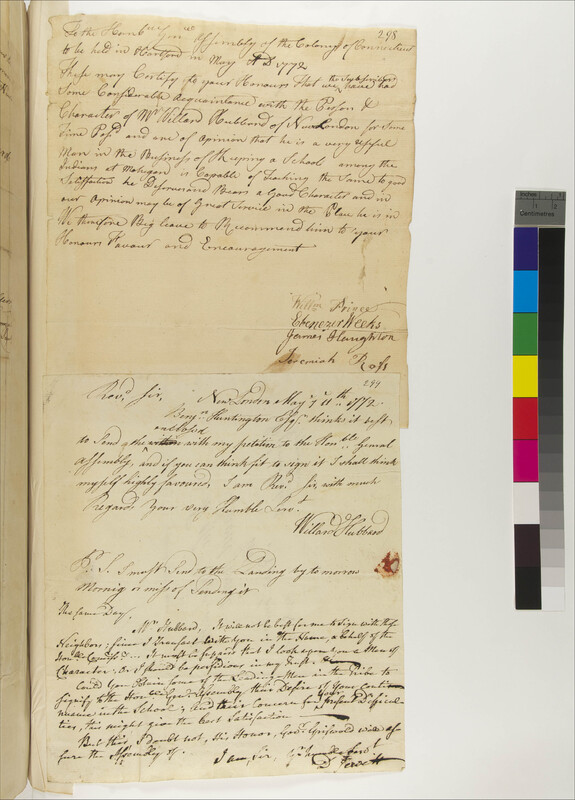 248
To the Honble Genl Assembly of the Colony of Connecticut
to be held in Hartford in May AD 1772
These may Certify to your Honours That we the Subscribers have had
Some Considerable Acquaintance with the Person &
Character of Mr Willard Hubbard of New London for Some
time Past and are of Opinion that he is a very usefull
Man in the Business of Keeping a School among the
Indians at Mohegan is Capable of Teaching the Same to good
Satisfaction he Deserves and Bears a Good Character and in
our Opinion may be of Great Service in the Place he is in
We therefore Beg leave to Recommend him to your
Honours Favour and Encouragement
Willm Prince
Ebenezer Weeks
James Haughton
Jeremiah Ross
249
Revd Sir, New London May ye 11th 1772
Benjn Huntington Esqr thinks it best
to Send the enclosed with my petition to the Honble General
Assembly, and if you can think fit to sign it I shall think
myself highly favoured, I am Revd Sir, with much
Regard Your very Humble Servt
Willard Hubbard
P. S. I must Send to the Landing by to morrow
Mornig or miss of Sending it
The same Day,
Mr Hubbard, It will not be best for me to Sign with these
Neighbors: Since I Transact with you in the Home, & behalf of the
Honble Comissrs. It must be supposed that I look upon you a Man of
Character: Or I should be perfidious in my trust. &c
Could you Obtain some of the Leading Men in the Tribe to
Signify to the Honble Genl Assembly their Desire of Your Contin-
nuance in the School; And their Concern for Your present Difficul-
ties, this might give the best Satisfaction
But this, I doubt not, His Honor, Govr Griswold will as-
sure the Assembly of.
I am, Sir, Yr humble Servt
D Jewett
Inches
Centimetres